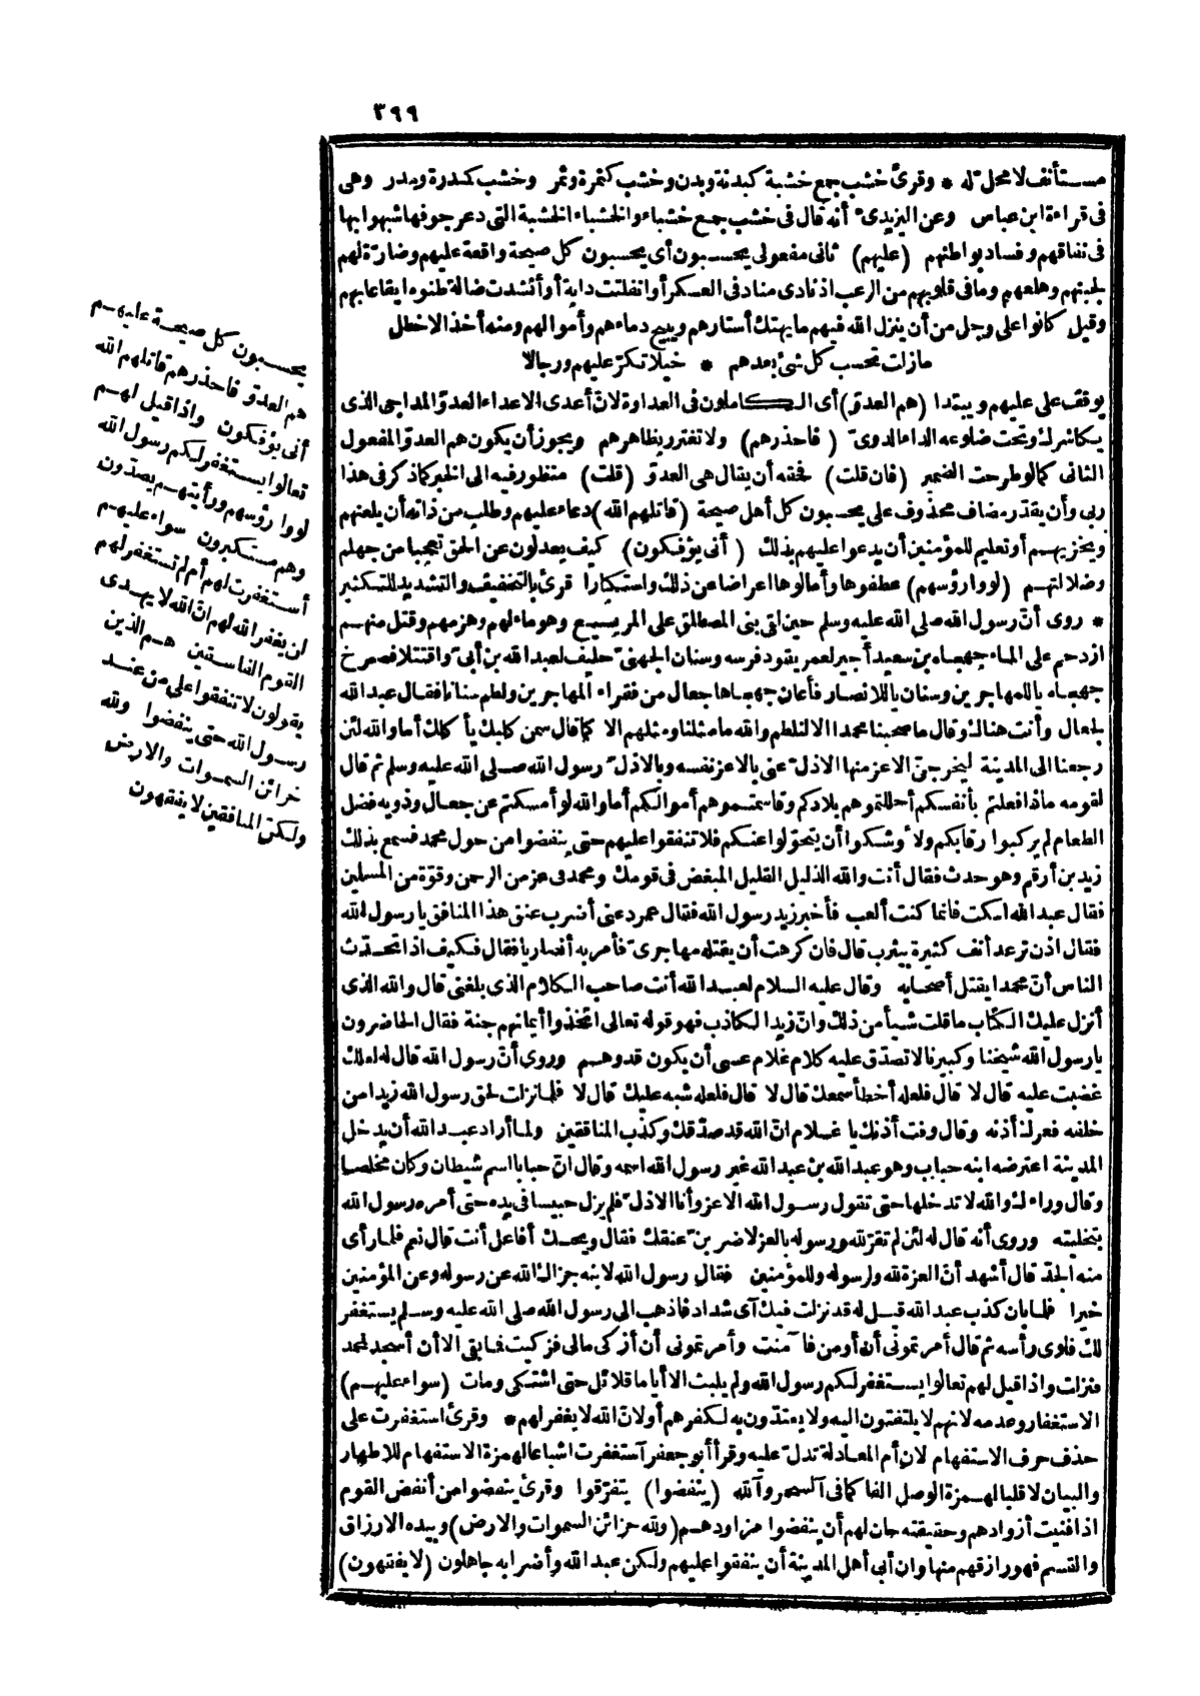 ٣٩٩
مستأنف لا محل له * وقرئ خشب جمع خشبة كبدنة وبدن وخشب كثمرة وثمر وخشب كمدرة ومدر وهى
فى قراءة ابن عباس وعن اليزيدىّ أنه قال فى خشب جمع خشباء والخشباء الخشبة التى دعر جوفها شبهوا بها
فى نفاقهم وفساد بواطنهم (عليهم) ثانى مفعولى يحسبون أى يحسبون كل صيحة واقعة عليهم وضارّة لهم
لجبنهم وهلعهم وما فى قلوبهم من الرعب اذ نادى مناد فى العسكر أو انفلتت دابة أو أنشدت ضالة ظنوه ايقاعا بهم
وقيل كانوا على وجل من أن ينزل الله فيهم ما يهتك أستارهم ويبيح دماءهم وأموالهم ومنه أخذ الاخطل
مازلت تحسب كل شئ بعدهم * خيلا تكرّ عليهم ورجالا
يوقف على عليهم ويبتدا (هم العدوّ) أى الكاملون فى العداوة لانّ أعدى الاعداء العدوّ المداجى الذى
يكاشرك وتحت ضلوعه الداء الدوىّ (فاحذرهم) ولا تغترر بظاهرهم ويجوز أن يكون هم العدوّ المفعول
الثانى كما لو طرحت الضمير (فان قلت) فحقه أن يقال هى العدوّ (قلت) منظور فيه الى الخبر كما ذكر فى هذا
ربى وأن يقدّر مضاف محذوف على يحسبون كل أهل صيحة (قاتلهم الله) دعاء عليهم وطلب من ذاته أن يلعنهم
ويخزيهم أو تعليم للمؤمنين أن يدعوا عليهم بذلك (أنى يؤفكون) كيف يعدلون عن الحق تعجيبا من جهلهم
وضلالتهم (لووا رؤسهم) عطفوها وأمالوها اعراضا عن ذلك واستكبارا قرئ بالتخفيف والتشديد للتكثير
* روى أنّ رسول الله صلى الله عليه وسلم حين لقى بنى المصطلق على المريسيع وهو ماء لهم وهزمهم وقتل منهم
ازدحم على الماء جهجاه بن سعيد أجير لعمر يقود فرسه وسنان الجهنىّ حليف لعبد الله بن أبىّ واقتتلا فصرخ
جهجاه يا للمهاجرين وسنان يا للانصار فأعان جهجاها جعال من فقراء المهاجرين ولطم سنانا فقال عبد الله
لجعال وأنت هناك وقال ما صحبنا محمدا الا لنلطم والله ما مثلنا ومثلهم الا كما قال سمن كلبك يأكلك أما والله لئن
رجعنا الى المدينة ليخرجنّ الاعز منها الاذلّ عنى بالاعز نفسه وبالاذلّ رسول الله صلى الله عليه وسلم ثم قال
لقومه ماذا فعلتم بأنفسكم أحللتموهم بلادكم وقاسمتموهم أموالكم أما والله لو أمسكتم عن جعال وذويه فضل
الطعام لم يركبوا رقابكم ولأوشكوا أن يتحوّلوا عنكم فلا تنفقوا عليهم حتى ينفضوا من حول محمد فسمع بذلك
زيد بن أرقم وهو حدث فقال أنت والله الذليل القليل المبغض فى قومك ومحمد فى عز من الرحمن وقوّة من المسلمين
فقال عبد الله اسكت فانما كنت ألعب فأخبر زيد رسول الله فقال عمر دعنى أضرب عنق هذا المنافق يا رسول الله
فقال اذن ترعد أنف كثيرة بيثرب قال فان كرهت أن يقتله مهاجرىّ فأمر به أنصاريا فقال فكيف اذا تحدّث
الناس أنّ محمدا يقتل أصحابه وقال عليه السلام لعبد الله أنت صاحب الكلام الذى بلغنى قال والله الذى
أنزل عليك الكتاب ما قلت شيأ من ذلك وانّ زيدا لكاذب فهو قوله تعالى اتخذوا أيمانهم جنة فقال الحاضرون
يا رسول الله شيخنا وكبيرنا لا تصدّق عليه كلام غلام عسى أن يكون قد وهم وروى أنّ رسول الله قال له لعلك
غضبت عليه قال لا قال فلعله أخطأ سمعك قال لا قال فلعله شبه عليك قال لا فلما نزلت لحق رسول الله زيدا من
خلفه فعرك أذنه وقال وفت أذنك يا غلام انّ الله قد صدّقك وكذب المنافقين ولما أراد عبد الله أن يدخل
المدينة اعترضه ابنه حباب وهو عبد الله بن عبد الله غير رسول الله اسمه وقال انّ حبابا اسم شيطان وكان مخلصا
وقال وراءك والله لا تدخلها حتى تقول رسول الله الاعز وأنا الاذلّ فلم يزل حبيسا فى يده حتى أمره رسول الله
بتخليته وروى أنه قال له لئن لم تقرّ لله ورسوله بالعز لاضربنّ عنقك فقال ويحك أفاعل أنت قال نعم فلما رأى
منه الجدّ قال أشهد أنّ العزة لله ولرسوله وللمؤمنين فقال رسول الله لابنه جزاك الله عن رسوله وعن المؤمنين
خيرا فلما بان كذب عبد الله قيل له قد نزلت فيك آى شداد فاذهب الى رسول الله صلى الله عليه وسلم يستغفر
لك فلوى رأسه ثم قال أمرتمونى أن أومن فآمنت وأمرتمونى أن أزكى مالى فزكيت فما بقى الا أن أسجد لمحمد
فنزلت واذا قيل لهم تعالوا يستغفر لكم رسول الله ولم يلبث الا أياما قلائل حتى اشتكى ومات (سواء عليهم)
الاستغفار وعدمه لانهم لا يلتفتون اليه ولا يعتدّون به لكفرهم أو لانّ الله لا يغفر لهم * وقرئ استغفرت على
حذف حرف الاستفهام لان أم المعادلة تدلّ عليه وقرأ أبو جعفر آستغفرت اشباعا لهمزة الاستفهام للاظهار
والبيان لا قلبا لهمزة الوصل ألفا كما فى آلسحر وآلله (ينفضوا) يتفرّقوا وقرئ ينفضوا من أنفض القوم
اذا فنيت أزوادهم وحقيقته حان لهم أن ينفضوا مزاودهم (ولله خزائن السموات والارض) وبيده الارزاق
والقسم فهو رازقهم منها وان أبى أهل المدينة أن ينفقوا عليهم ولكن عبد الله وأضرابه جاهلون (لا يفقهون)
يحسبون كل صيحة عليهم
هم العدوّ فاحذرهم قاتلهم الله
أنى يؤفكون واذا قيل لهم
تعالوا يستغفر لكم رسول الله
لووا رؤسهم ورأيتهم يصدّون
وهم مستكبرون سواء عليهم
أستغفرت لهم أم لم تستغفر لهم
لن يغفر الله لهم انّ الله لا يهدى
القوم الفاسقين هم الذين
يقولون لا تنفقوا على من عند
رسول الله حتى ينفضوا ولله
خزائن السموات والارض
ولكنّ المنافقين لا يفقهون